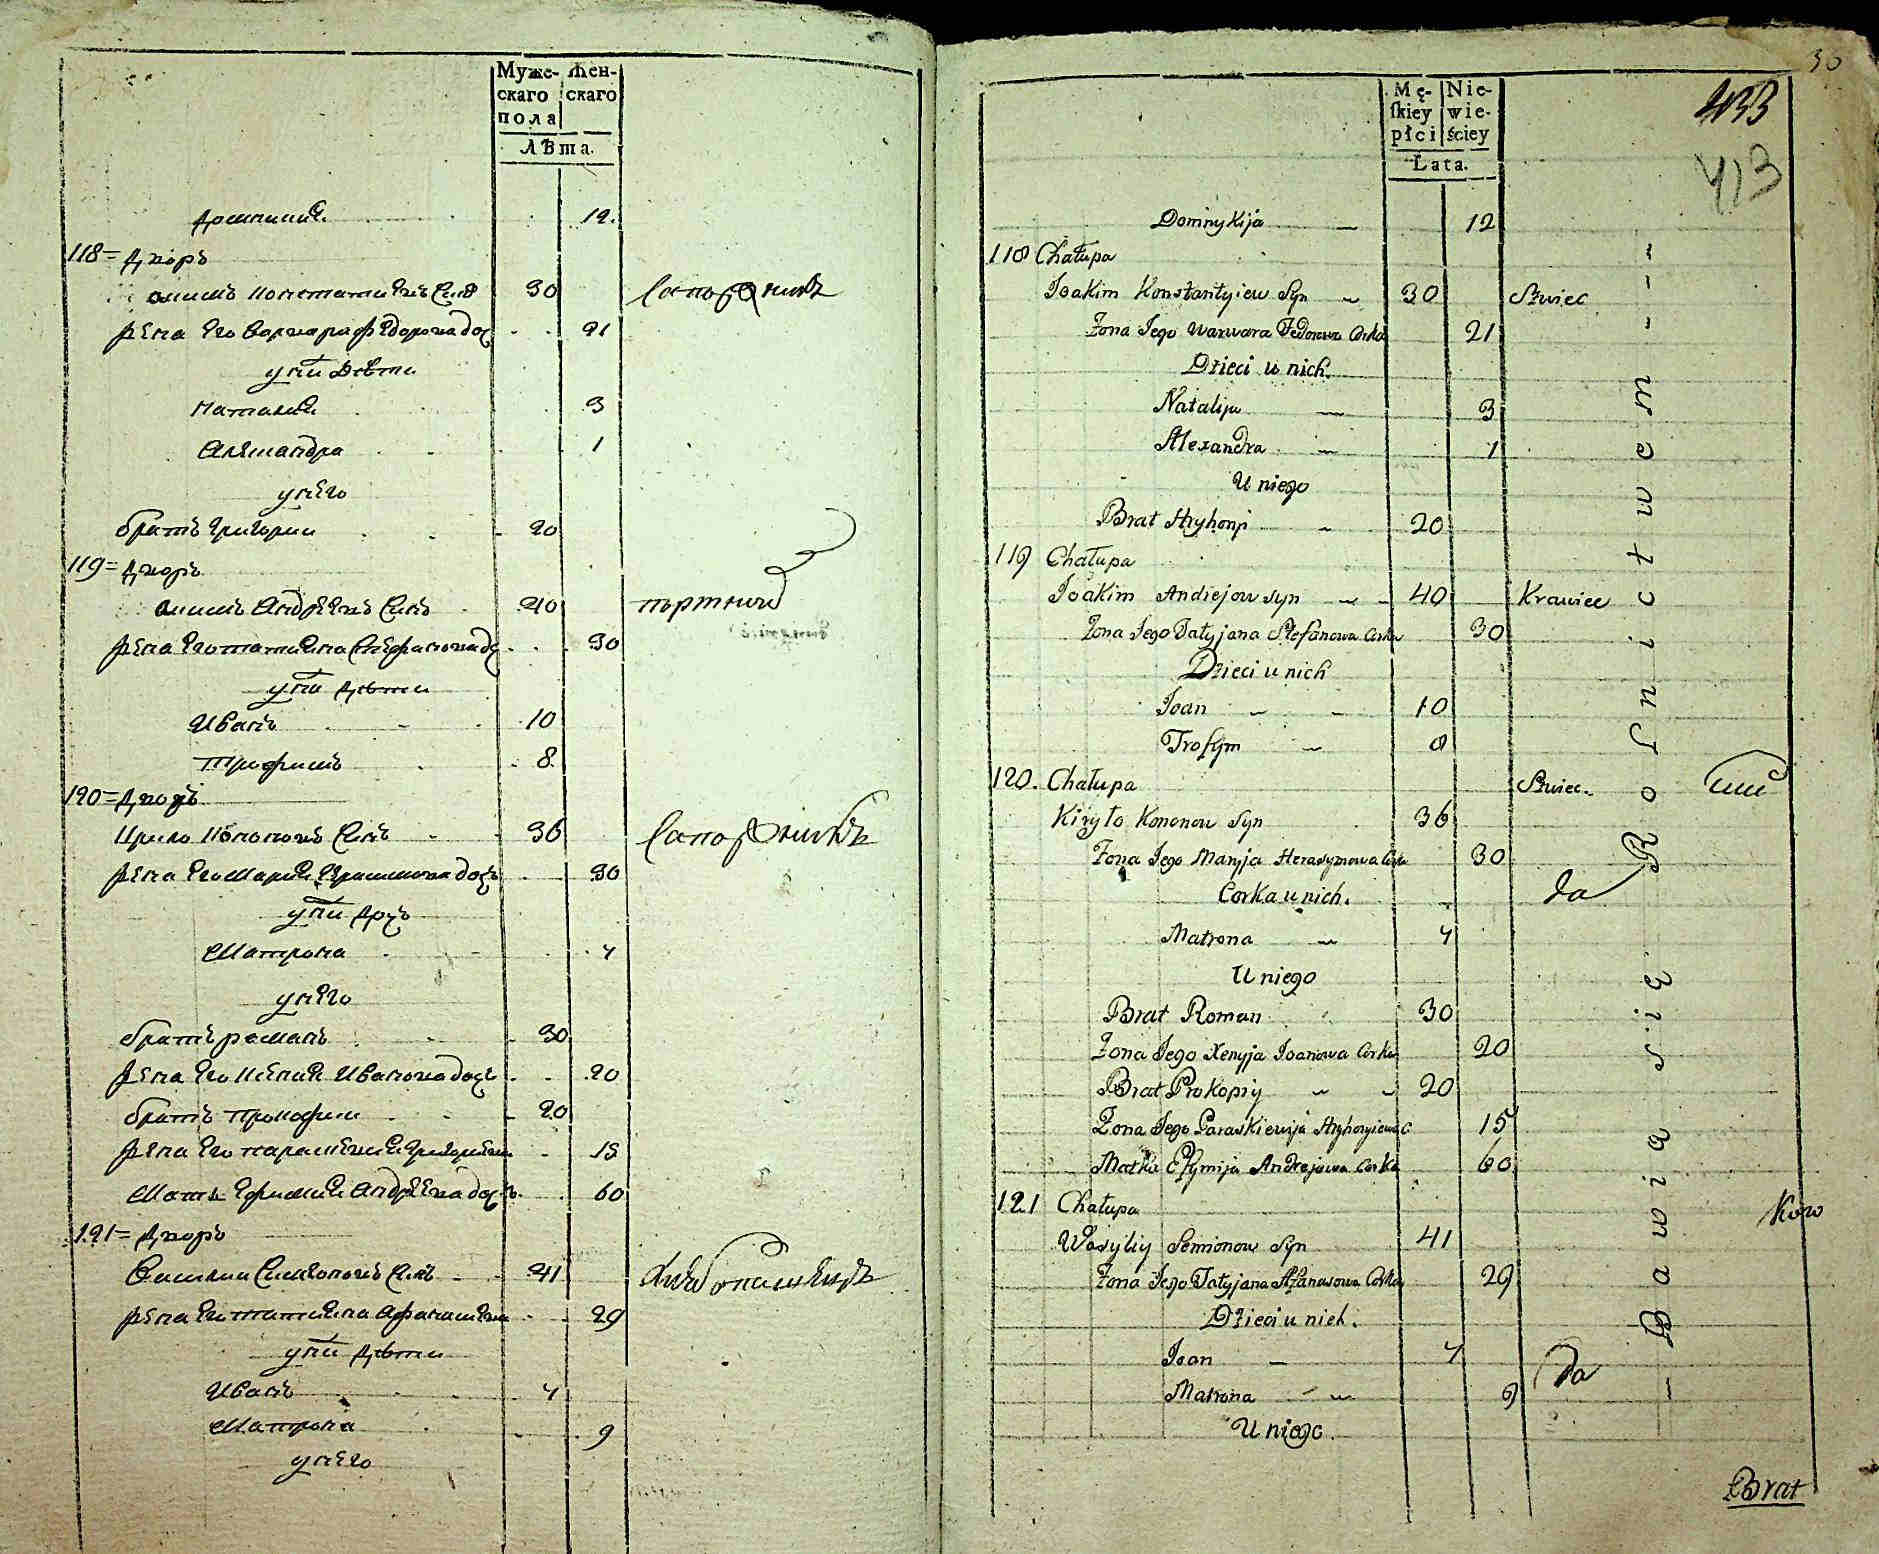 Муже- Жен-
скаго скаго
пола
Лѣта.
Домникия 12.
118 = Дворъ
Якимъ Константиевъ Синъ 30 Сапожникъ
Жена Его Варвара Федорова доч 21
у ни Дѣти
Наталия 3
Александра 1
у него
братъ Григории 20
119 = Дворъ
Якимъ Андреевъ Синъ 40 портний
Жена Его татияна Стефанова д 30
у ни Дѣти
Иванъ 10
Трофимъ 8.
120 = Дворъ
Кирило Кононовъ Синъ 36 Сапожникъ
Жена Его Мария Герасимова дочъ 30
у ни Дочъ
Матрона 4
у него
братъ романъ 30
Жена Его Ксения Иванова дочъ 20
братъ прокофии 20
Жена Его параскевия Григориева 15
Мать Ефимия Андреева дочъ 60
121 = Дворъ
Василии Симеоновъ Синъ 41 хлебопашецъ
Жена Его татияна Афанасиева 29
у ни Дѣти
Иванъ 4
Матрона 9
у него
30
Mę- Nie-
ſkiey wie-
płci ściey
Lata.
433
413
Domnykija 12
118 Chałupa
Joakim Konstantyiew Syn 30 Szwiec
Zona Jego Warwara Fedorowa Corka 21
Dzieci u nich.
Natalija 3
Alexandra 1
U niego
Brat Hryhoryi 20
119 Chałupa
Joakim Andiejow syn 40 Krawiec
Zona Jego Tatyjana Stefanowa Corka 30
Dzieci u nich
Joan 10
Trofym 8
120. Chałupa Szwiec.
Kiryło Kononow Syn 36
Zona Jego Maryja Herasymowa Corka 30
Corka u nich. da
Matrona 4
U niego
Brat Roman 30
Zona Jego Xenyja Joanowa Corka 20
Brat Prokopiy 20
Zona Jego Paraskiewija Hryhoryiewa C 15
Matka Efymija Andrejowa Corka 60
121 Chałupa
Wasyliy Semionow Syn 41
Zona Jego Tatyjana Afanasowa Corka 29
Dzieci u nich.
Joan 4
Matrona 9 da
U niego.
Bawią się Rolnictwem
Brat